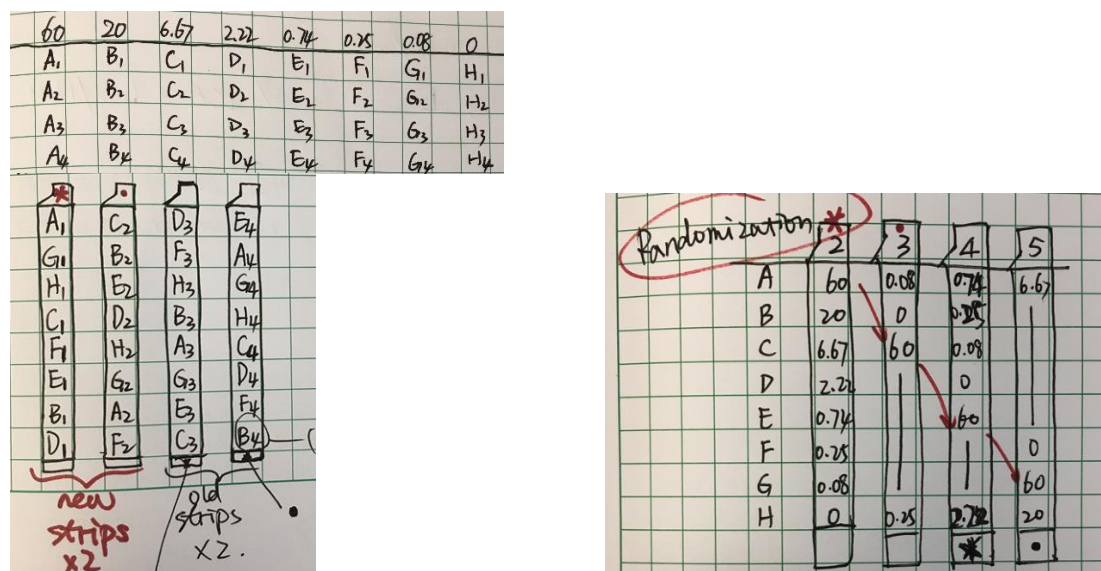 60 20 6.67 2.22 0.74 0.25 0.08 0
A₁ B₁ C₁ D₁ E₁ F₁ G₁ H₁
A₂ B₂ C₂ D₂ E₂ F₂ G₂ H₂
A₃ B₃ C₃ D₃ E₃ F₃ G₃ H₃
A₄ B₄ C₄ D₄ E₄ F₄ G₄ H₄
* •
A₁ C₂ D₃ E₄
G₁ B₂ F₃ A₄
H₁ E₂ H₃ G₄
C₁ D₂ B₃ H₄
F₁ H₂ A₃ C₄
E₁ G₂ G₃ D₄
B₁ A₂ E₃ F₄
D₁ F₂ C₃ B₄
new old
strips strips
x2 x2.
•
Randomization * •
2 3 4 5
A 60 0.08 0.74 6.67
B 20 0 0.25
C 6.67 60 0.08
D 2.22 0
E 0.74 60
F 0.25 0
G 0.08 60
H 0 0.25 2.22 20
* •